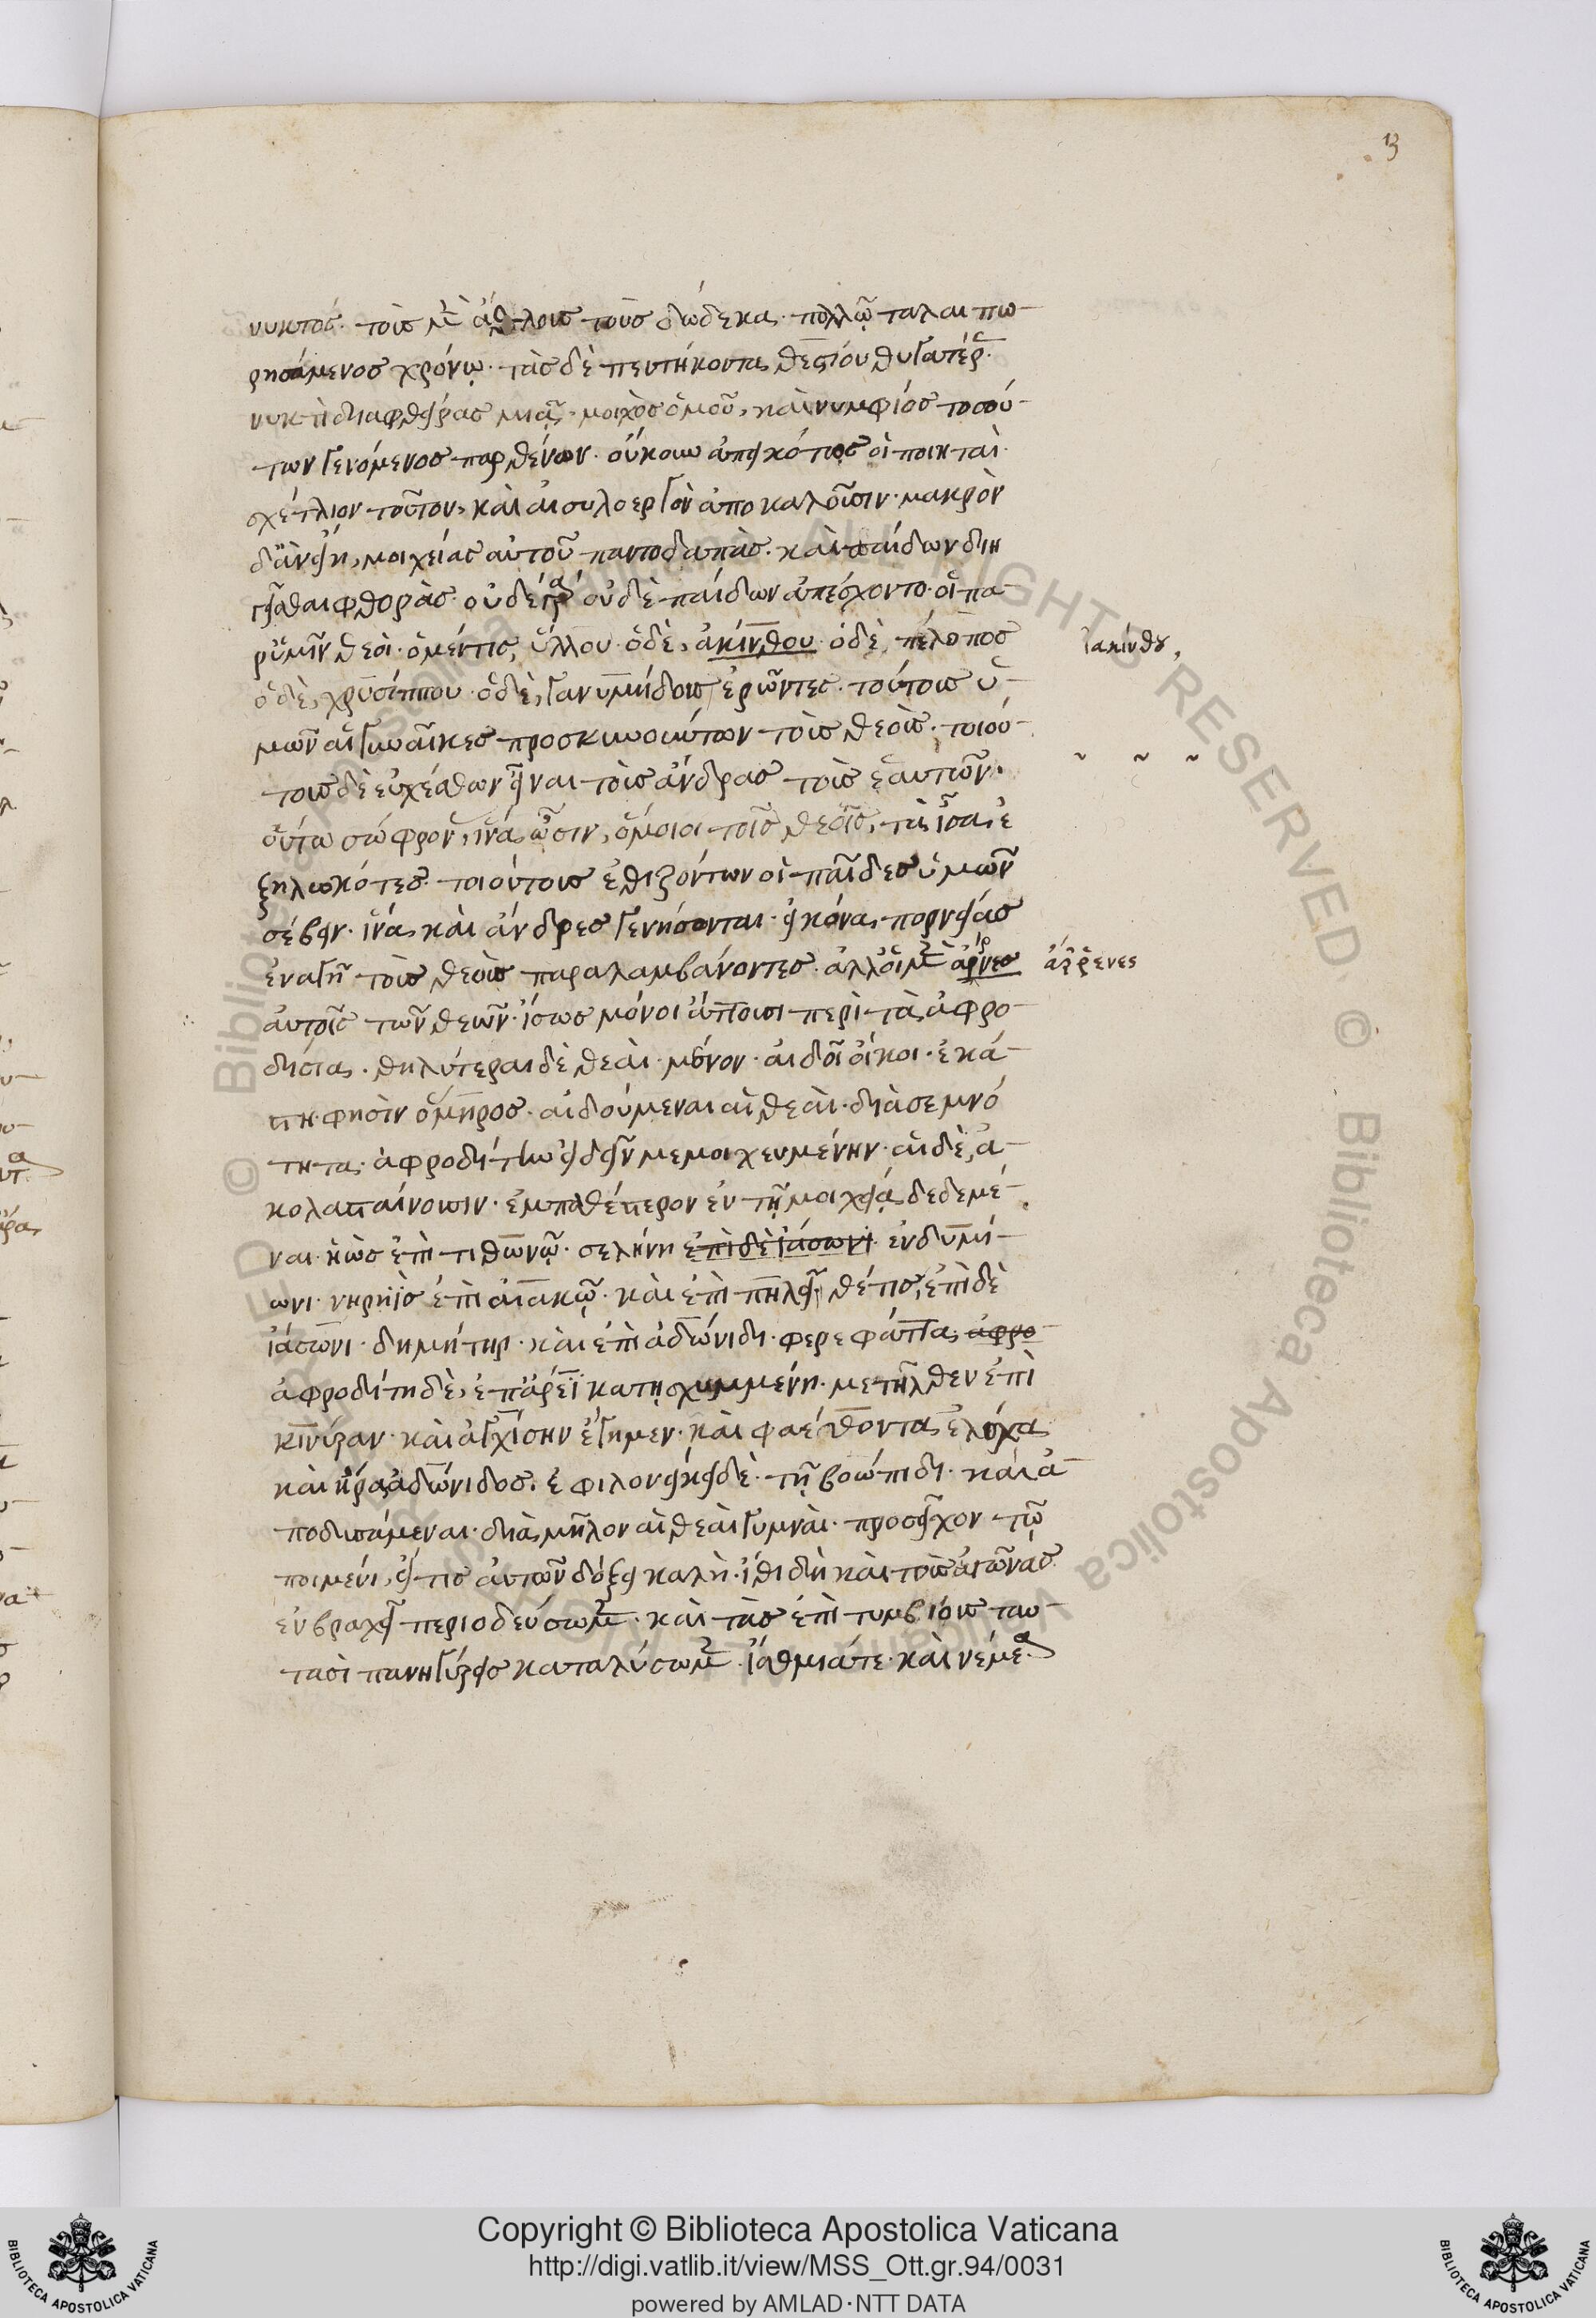 13
νυκτός. τοὺς μὲν ἄθλους τοὺς δώδεκα. πολλῷ ταλαιπω-
ρησάμενος χρόνῳ. τὰς δὲ πεντήκοντα θεστίου θυγατέρ.
νυκτὶ διαφθείρας μιᾷ. μοιχὸς ὁμοῦ, καὶ νυμφίος τοσού-
των γενόμενος παρθένων. οὔκουν ἀπεικότως οἱ ποιηταὶ.
σχέτλιον τοῦτον, καὶ αἰσυλοεργὸν ἀποκαλοῦσιν. μακρὸν
δ' ἂν εἴη, μοιχείας αὐτοῦ παντοδαπὰς. καὶ παίδων διη
γεῖσθαι φθορὰς. οὐδὲ γὰρ οὐδὲ παίδων ἀπέσχοντο. οἱ πα-
ρ' ὑμῖν θεοὶ. ὁ μέν τις, ὕλλου. ὁ δὲ, ἀκίνθου. ὁ δὲ, πέλοπος
ὁ δὲ, χρυσίππου. ὁ δὲ, γανυμήδους ἐρῶντες. τούτους ὑ-
μῶν αἱ γυναῖκες προσκυνούντων τοὺς θεοὺς. τοιού-
τους δὲ εὐχέσθων εἶναι τοὺς ἄνδρας τοὺς ἑαυτῶν.
οὕτω σώφρον, ἵνα ὦσιν, ὅμοιοι τοῖς θεοῖς, τὰ ἴσα ἐ
ζηλωκότες. τοιούτους ἐθιζόντων οἱ παῖδες ὑμῶν
σέβειν. ἵνα καὶ ἄνδρες γενήσονται. εἰκόνα πορνείας
ἐναγῆ τοὺς θεοὺς παραλαμβάνοντες. ἀλλ' οἱ μὲν ἄρρενες
αὐτοῖς τῶν θεῶν. ἴσως μόνοι ἄττουσι περὶ τὰ ἀφρο-
δίσια. θηλύτεραι δὲ θεαὶ. μένον. αἰδοῖ οἴκοι. ἑκά-
στη. φησὶν ὅμηρος. αἰδούμεναι αἱ θεαὶ. διὰ σεμνό
τητα. ἀφροδίτην ἰδεῖν μεμοιχευμένην. αἱ δὲ, ἀ-
κολασταίνουσιν. ἐμπαθέστερον ἐν τῇ μοιχείᾳ δεδεμέ-
ναι. ἠὼς ἐπὶ τιθωνῷ. σελήνη ἐπὶ δὲ ἰάσωνι ἐνδυμί-
ωνι. νηρηῒς ἐπὶ αἰακῷ. καὶ ἐπὶ πηλεῖ θέτις, ἐπὶ δὲ
ἰάσωνι. δημήτηρ. καὶ ἐπὶ ἀδώνιδι. φερεφάττα, ἀφρο-
ἀφροδίτη δὲ, ἐπ' ἄρεϊ κατῃσχυμμένη. μετῆλθεν ἐπὶ
κινύραν. καὶ ἀγχίσην ἔγημεν. καὶ φαέθοντα ἐλόχα
καὶ ἤρα ἀδώνιδος. ἐφιλονείκει δὲ. τῇ βοώπιδι. καὶ ἀ-
ποδυσάμεναι. διὰ μῆλον αἱ θεαὶ γυμναὶ. προσεῖχον τῷ
ποιμένι, εἴ τις αὐτῶν δόξει καλὴ. ἴθι δὴ καὶ τοὺς ἀγῶνας.
ἐν βραχεῖ περιοδεύσωμεν. καὶ τὰς ἐπὶ τυμβίους ταυ-
τασὶ πανηγύρεις καταλύσωμεν. ἴσθμιά τε. καὶ νέμεα
ἰακίνθου,
ἄῤῥενες
Copyright © Biblioteca Apostolica Vaticana
http://digi.vatlib.it/view/MSS_Ott.gr.94/0031
powered by AMLAD·NTT DATA
BIBLIOTECA APOSTOLICA VATICANA
BIBLIOTECA APOSTOLICA VATICANA